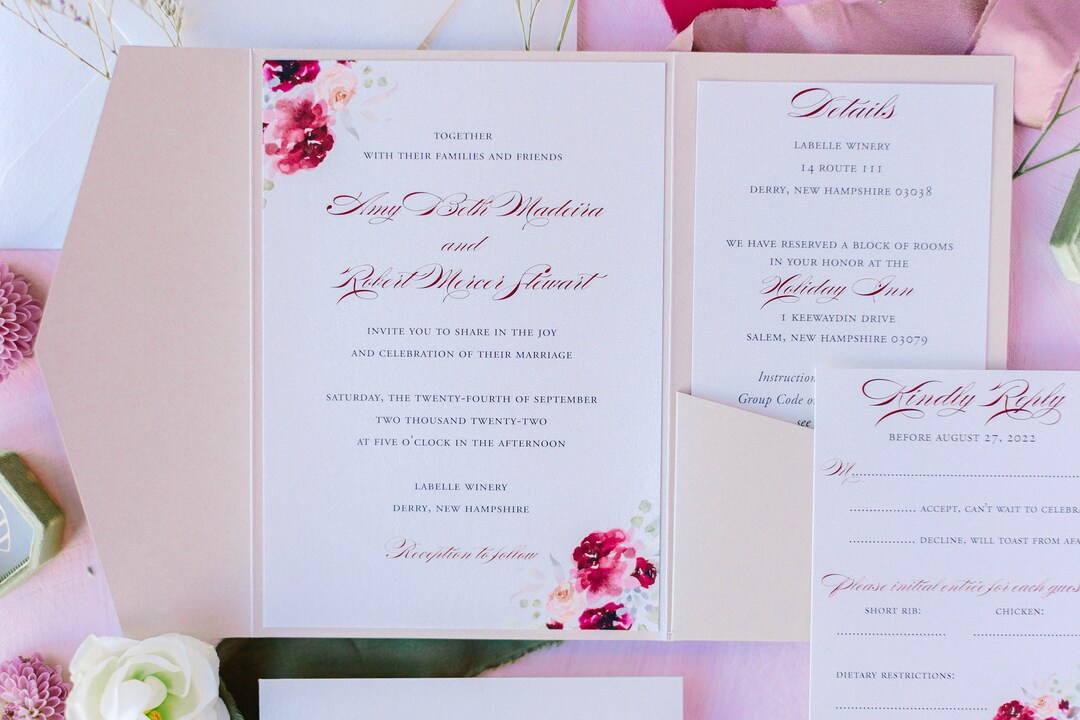 TOGETHER
WITH THEIR FAMILIES AND FRIENDS
Amy Beth Madeira
and
Robert Mercer Stewart
INVITE YOU TO SHARE IN THE JOY
AND CELEBRATION OF THEIR MARRIAGE
SATURDAY, THE TWENTY-FOURTH OF SEPTEMBER
TWO THOUSAND TWENTY-TWO
AT FIVE O'CLOCK IN THE AFTERNOON
LABELLE WINERY
DERRY, NEW HAMPSHIRE
Reception to follow
Details
LABELLE WINERY
14 ROUTE 111
DERRY, NEW HAMPSHIRE 03038
WE HAVE RESERVED A BLOCK OF ROOMS
IN YOUR HONOR AT THE
Holiday Inn
1 KEEWAYDIN DRIVE
SALEM, NEW HAMPSHIRE 03079
Instruction
Group Code o
see
Kindly Reply
BEFORE AUGUST 27, 2022
M
ACCEPT, CAN'T WAIT TO CELEBRA
DECLINE, WILL TOAST FROM AFA
Please initial entrée for each gues
SHORT RIB: CHICKEN:
DIETARY RESTRICTIONS: